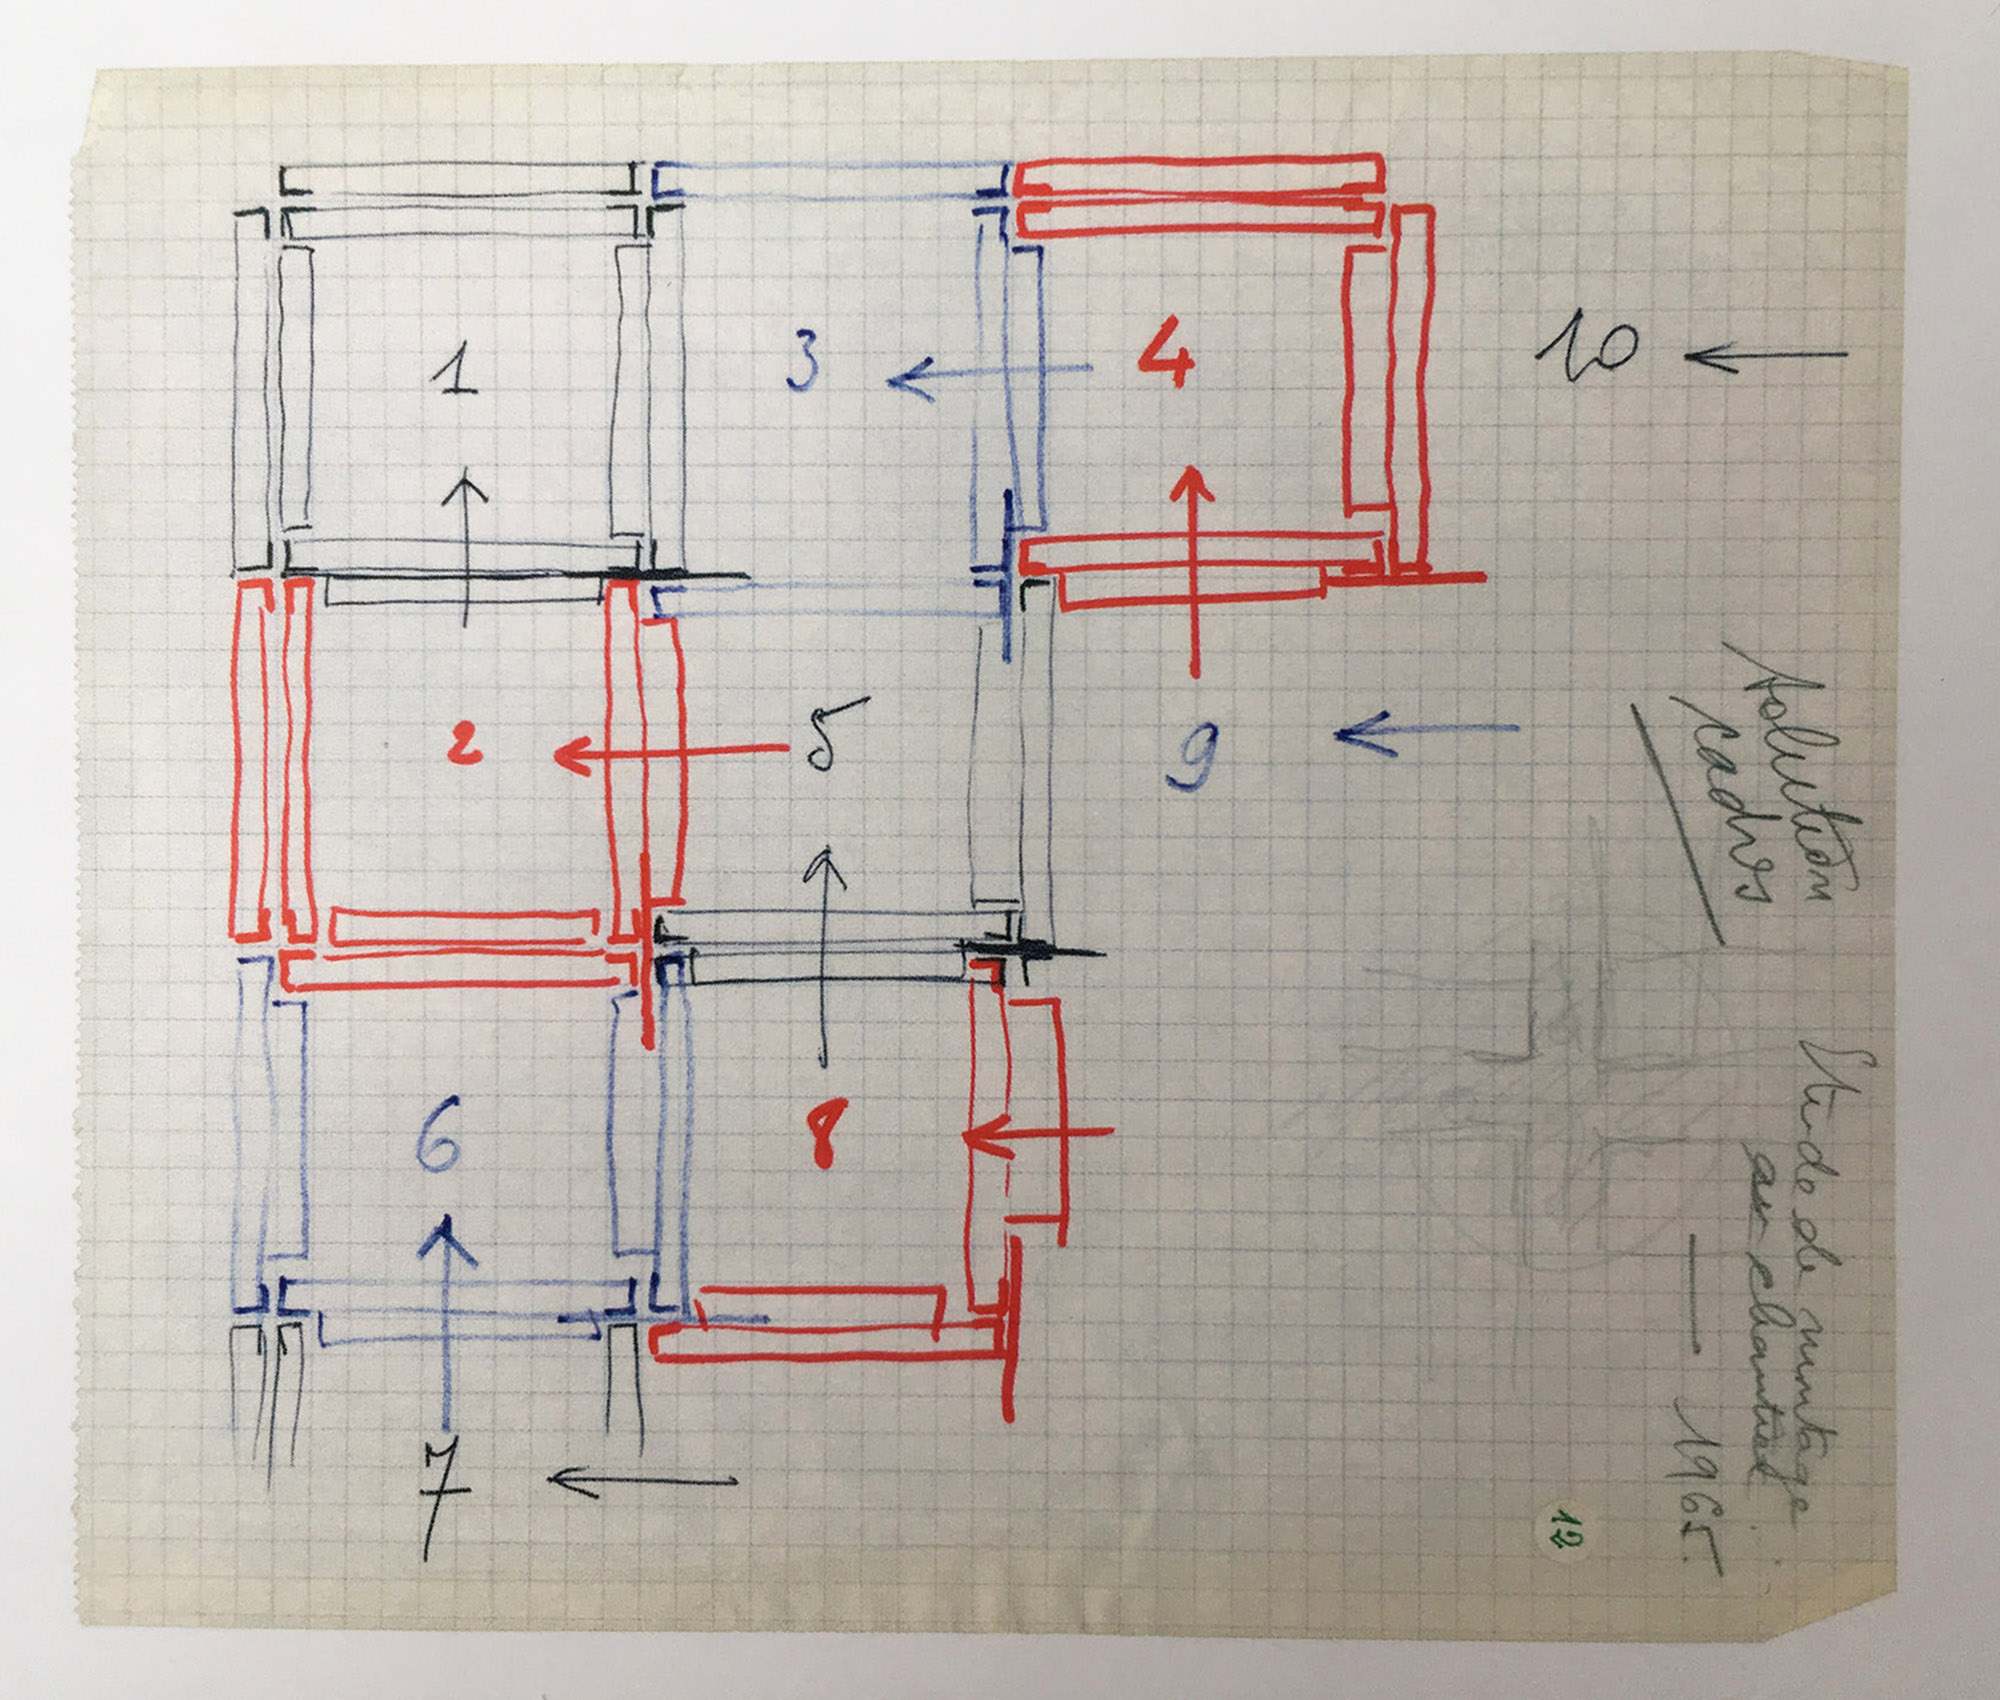 1
3
4
10
2
5
9
6
8
7
solution
cadres
Etude de montage
sur chantier
1965.
12